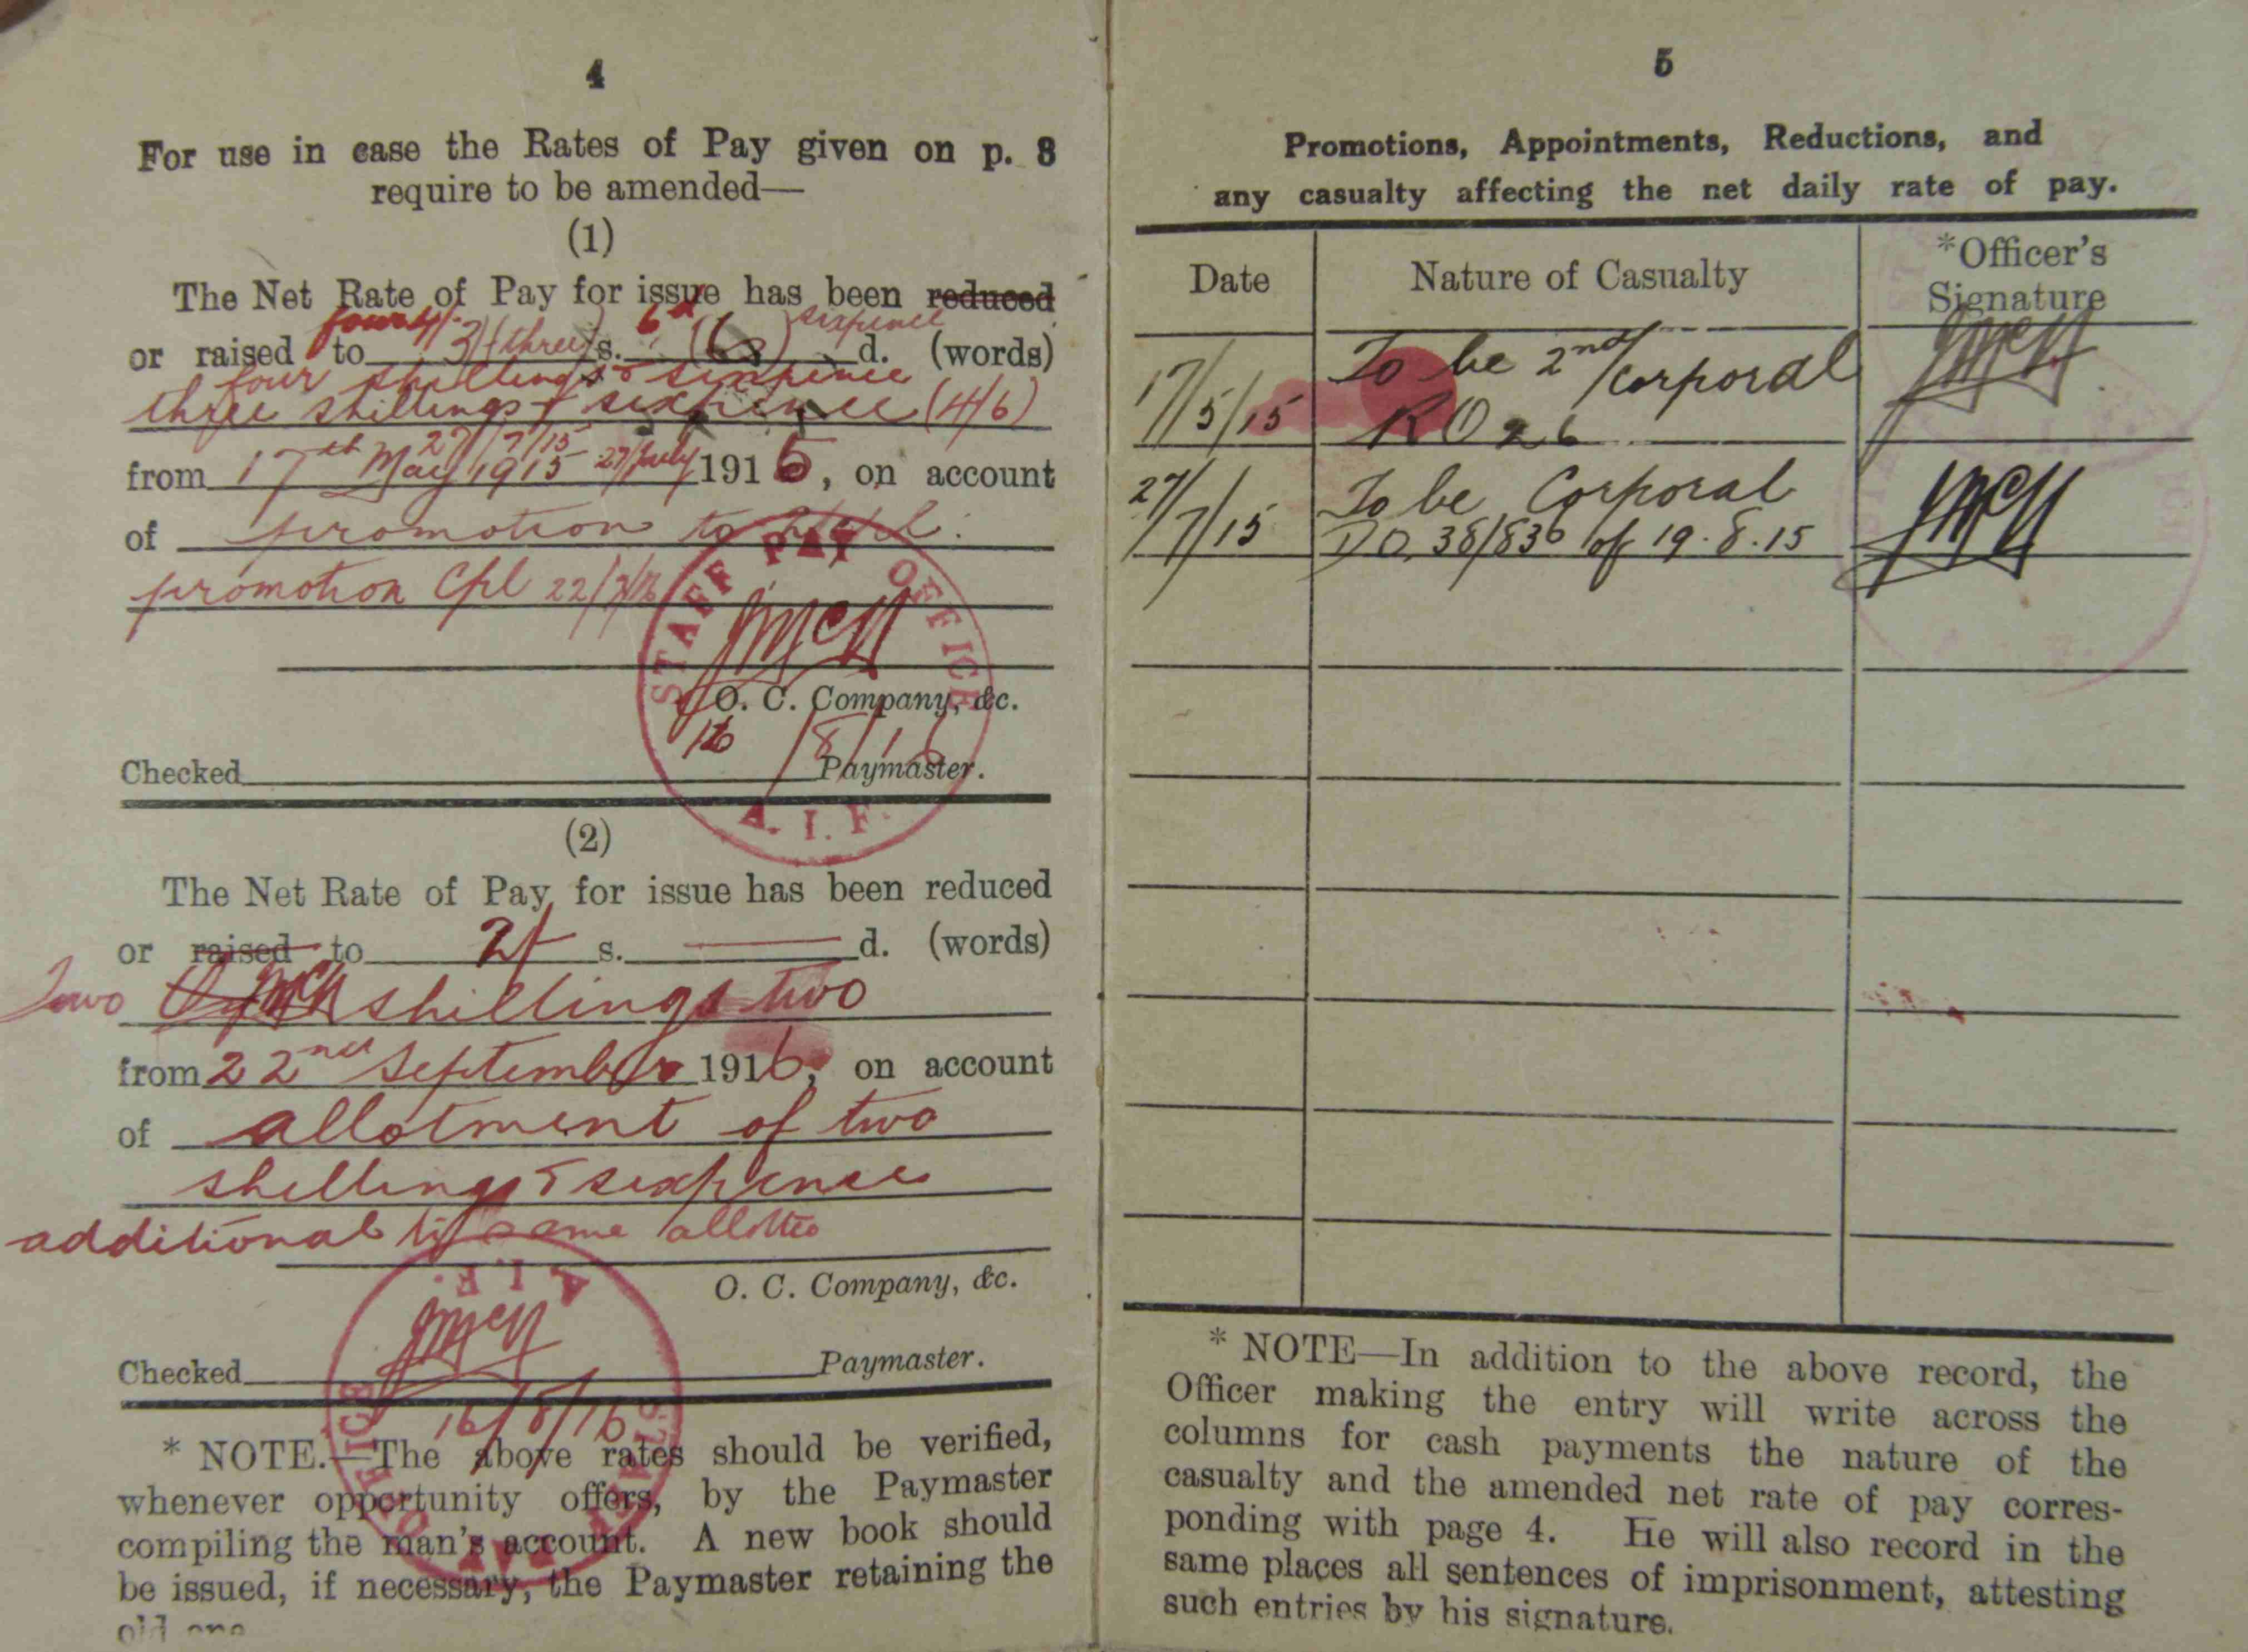 4
For use in case the Rates of Pay given on p. 8
require to be amended—
(1)
The Net Rate of Pay for issue has been reduced
four 4/- 6d sixpence
or raised to 3/ (three) s. (6) d. (words)
four shillings & sixpence
three shillings & sixpence (4/6)
27/7/15
from 17th May 1915 27/July 1915, on account
of promotion to
promotion Cpl
STAFF PAY OFFICE
A. I. F.
O. C. Company, &c.
16/8/16
Checked Paymaster.
(2)
The Net Rate of Pay for issue has been reduced
or raised to 2/- s. d. (words)
Two shillings two
from 22nd September 1916, on account
of allotment of two
shillings & sixpence
additional to same allottee
O. C. Company, &c.
A. I. F.
STAFF PAY OFFICE
Checked Paymaster.
16/8/16
* NOTE.—The above rates should be verified,
whenever opportunity offers, by the Paymaster
compiling the man's account. A new book should
be issued, if necessary, the Paymaster retaining the
old one
5
Promotions, Appointments, Reductions, and
any casualty affecting the net daily rate of pay.
Date Nature of Casualty *Officer's Signature
17/5/15 To be 2nd/Corporal
RO 26
27/7/15 To be Corporal
DO 38/836 of 19.8.15
* NOTE—In addition to the above record, the
Officer making the entry will write across the
columns for cash payments the nature of the
casualty and the amended net rate of pay corres-
ponding with page 4. He will also record in the
same places all sentences of imprisonment, attesting
such entries by his signature.